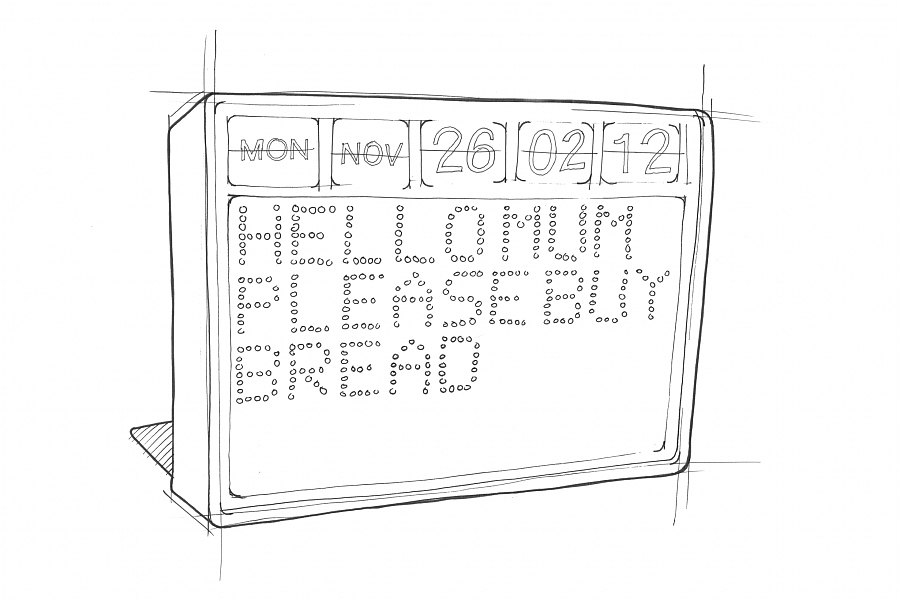 MON NOV 26 02 12
HELLO MUM
PLEASE BUY
BREAD